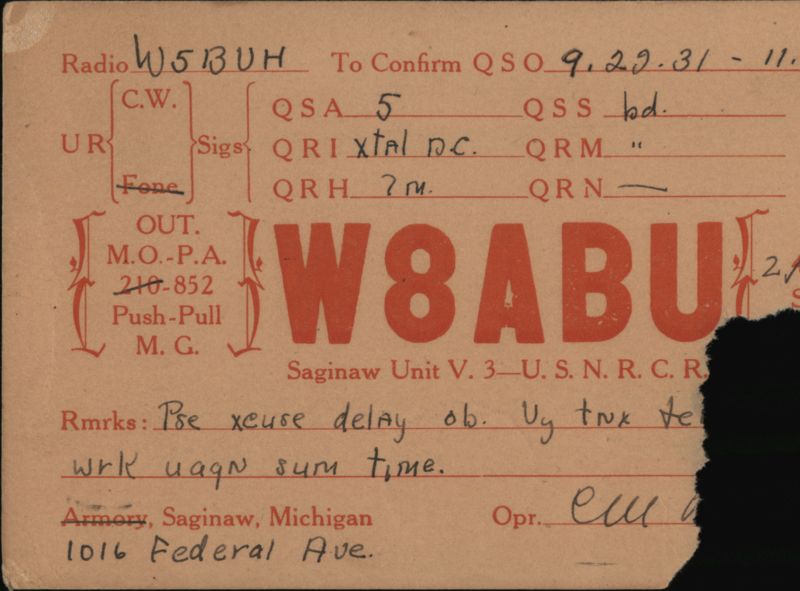 Radio W5BUH To Confirm QSO 9.29.31 - 11.
C.W. QSA 5 QSS bd.
UR Sigs QRI xtAl D.C. QRM "
Fone QRH 7m. QRN —
OUT.
M.O.-P.A.
210-852
Push-Pull
M. G.
W8ABU
Saginaw Unit V. 3—U. S. N. R. C. R.
Rmrks: Pse xcuse delAy ob. Vy tnx
wrk uagn sum time.
Armory, Saginaw, Michigan Opr.
1016 Federal Ave.